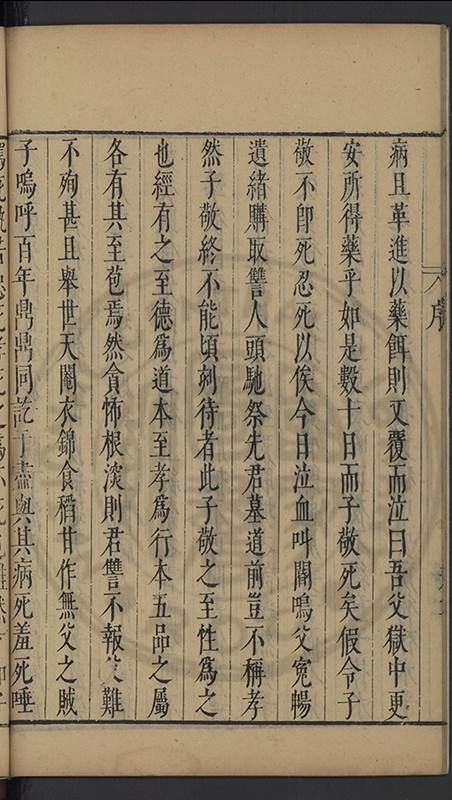 病且革進以藥餌則又覆而泣曰吾父獄中更
安所得藥乎如是數十日而子敬死矣假令子
敬不卽死忍死以俟今日泣血叫閽鳴父冤暢
遺緒購取讐人頭馳祭先君墓道前豈不稱孝
然子敬終不能頃刻待者此子敬之至性爲之
也經有之至德爲道本至孝爲行本五品之屬
各有其至苞焉然貪怖根深則君讐不報父難
不殉甚且舉世天閹衣錦食稻甘作無父之賊
子嗚呼百年鼎鼎同訖于盡與其病死羞死唾